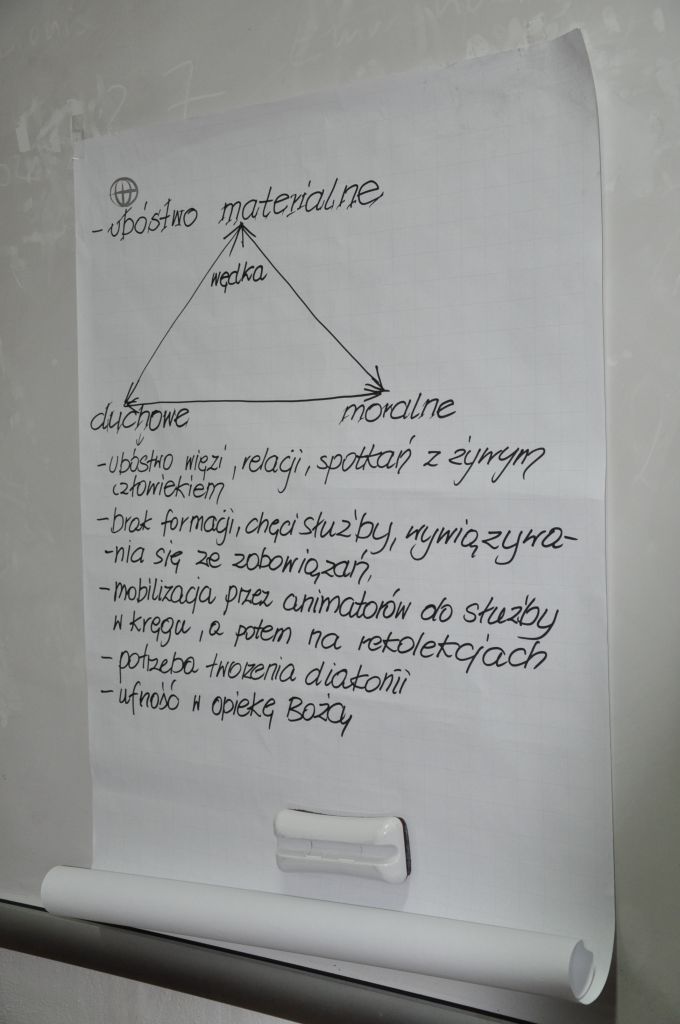 - ubóstwo materialne
wędka
duchowe moralne
- ubóstwo więzi, relacji, spotkań z żywym
człowiekiem
- brak formacji, chęci służby, wywiązywa-
-nia się ze zobowiązań,
- mobilizacja przez animatorów do służby
w kręgu, a potem na rekolekcjach
- potrzeba tworzenia diakonii
- ufność w opiekę Bożą